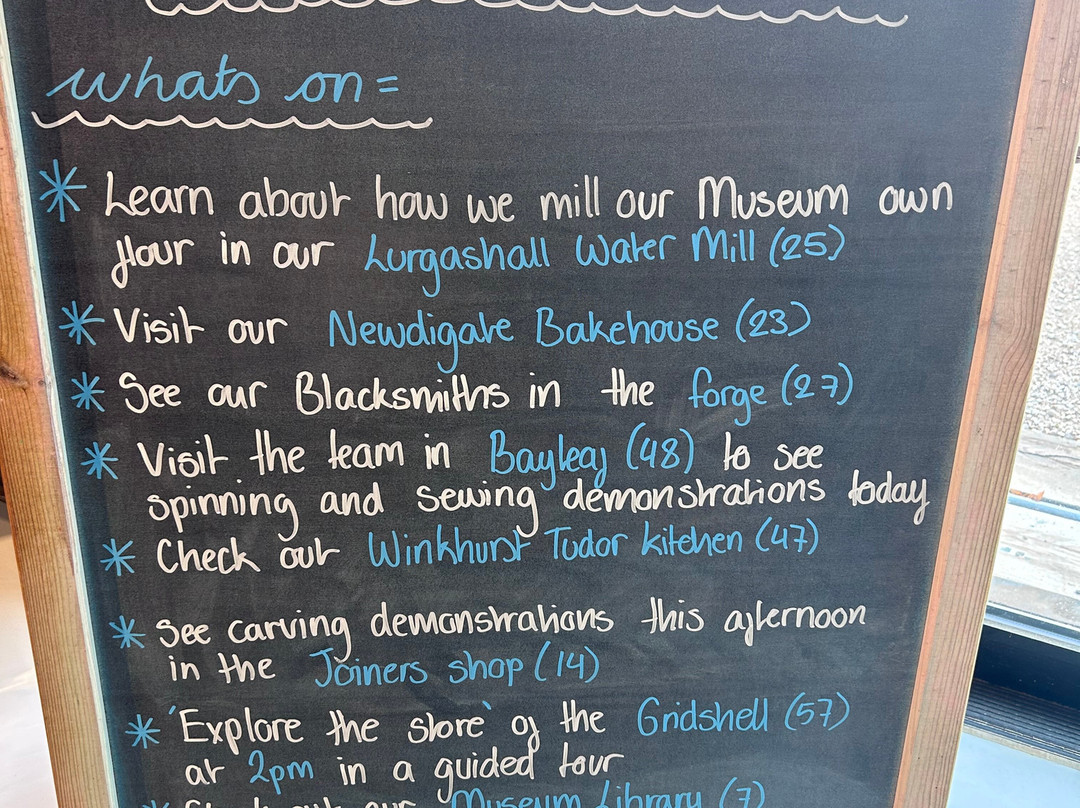 whats on=
* Learn about how we mill our Museum own
flour in our Lurgashall Water Mill (25)
* Visit our Newdigate Bakehouse (23)
* See our Blacksmiths in the forge (27)
* Visit the team in Bayleaf (48) to see
spinning and sewing demonstrations today
* Check out Winkhurst Tudor kitchen (47)
* See carving demonstrations this afternoon
in the Joiners shop (14)
* 'Explore the store' of the Gridshell (57)
at 2pm in a guided tour
* our Museum Library (7)